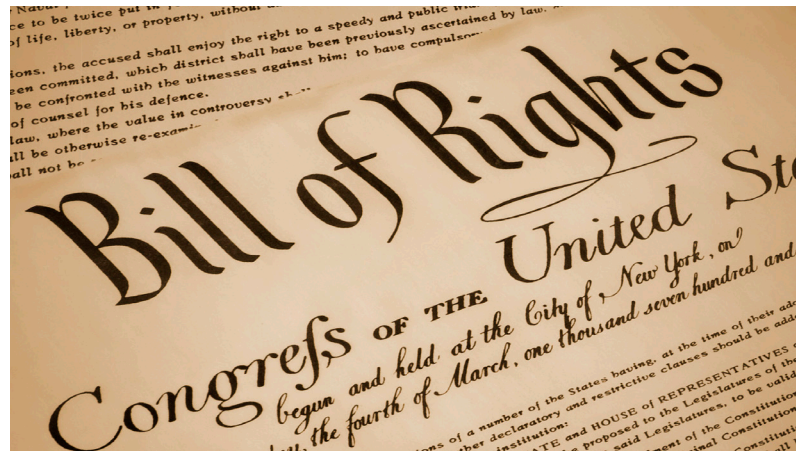 Naval
ce to be twice put in
of life, liberty, or property, without
ions, the accused shall enjoy the right to a speedy and public
een committed, which district shall have been previously ascertained by law,
be confronted with the witnesses against him; to have
of counsel for his defence.
law, where the value in controversy
all be otherwise
all not be
Bill of Rights
Congreſs OF THE United
begun and held at the City of New York, on
the fourth of March, one thousand seven hundred and
ions of a number of the States having, at the time of their
ther declaratory and restrictive clauses should be
institution:
ATE and HOUSE of REPRESENTATIVES
be proposed to the Legislatures of the
said Legislatures, to be valid
ment of the Constitution
Constitution